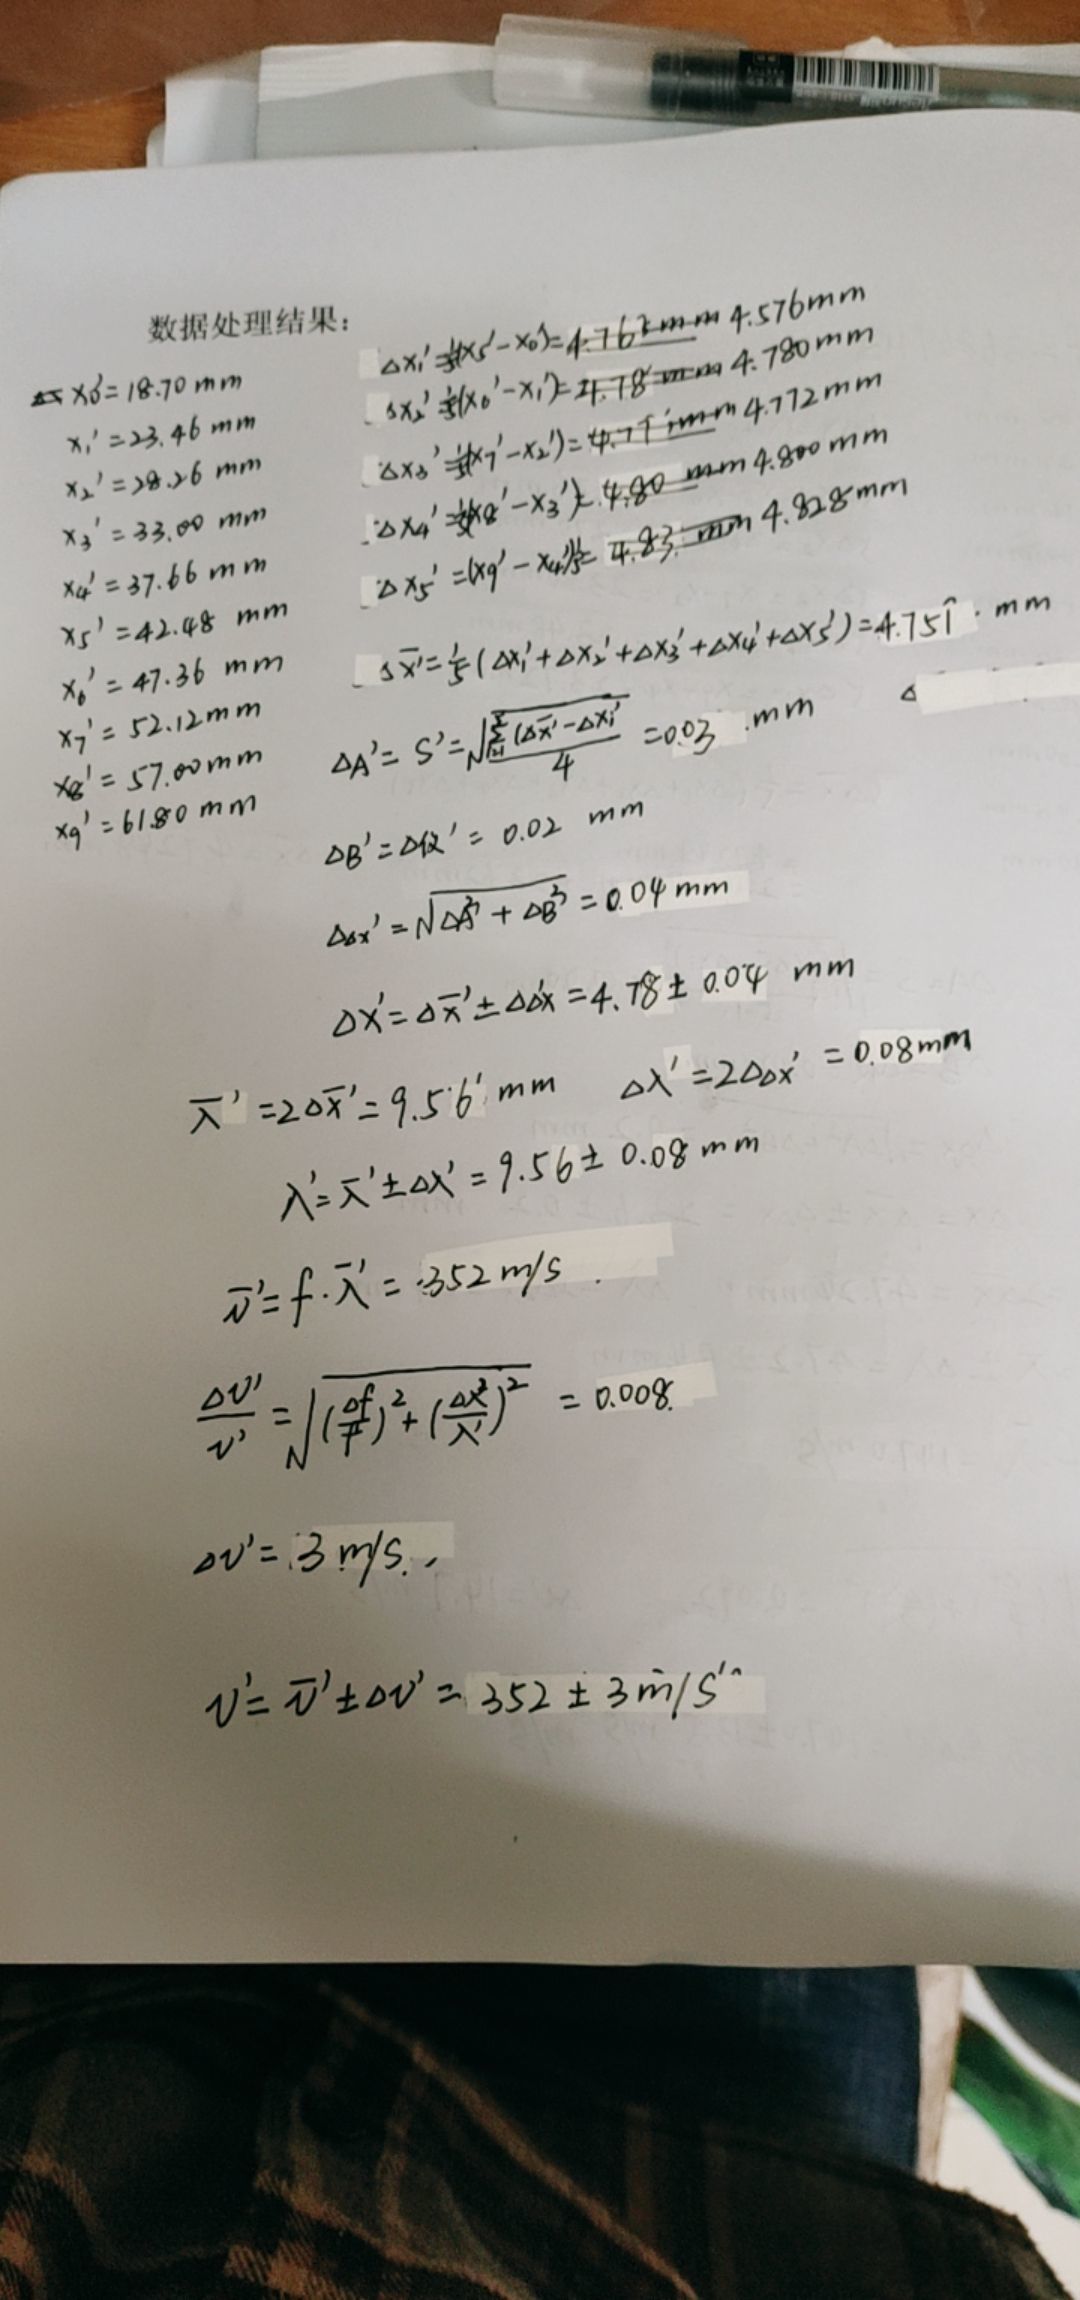 数据处理结果:
x0'=18.70 mm
x1'=23.46 mm
x2'=28.26 mm
x3'=33.00 mm
x4'=37.66 mm
x5'=42.48 mm
x6'=47.36 mm
x7'=52.12mm
x8'=57.00mm
x9'=61.80 mm
Δx1'=1/5(x5'-x0')=4.762mm 4.576mm
Δx2'=1/5(x6'-x1')=4.78mm 4.780mm
Δx3'=1/5(x7'-x2')= mm 4.772mm
Δx4'=1/5(x8'-x3')=4.80 mm 4.800mm
Δx5'=(x9'-x4')1/5=4.83 mm 4.828mm
Δx̄'=1/5(Δx1'+Δx2'+Δx3'+Δx4'+Δx5')=4.751 mm
Δ
ΔA'=S'=√(Σ(Δx̄'-Δxi')/4)=0.03 mm
ΔB'=Δ仪'=0.02 mm
ΔΔx'=√(ΔA'²+ΔB'²)=0.04mm
ΔX'=Δx̄'±ΔΔx'=4.78±0.04 mm
λ̄'=2Δx̄'=9.56 mm Δλ'=2ΔΔx'=0.08mm
λ'=λ̄'±Δλ'=9.56±0.08mm
v̄'=f·λ̄'=352m/s
Δv'/v'=√((Δf/f)²+(Δλ'/λ')²)=0.008
Δv'=3m/s.
v'=v̄'±Δv'=352±3m/s